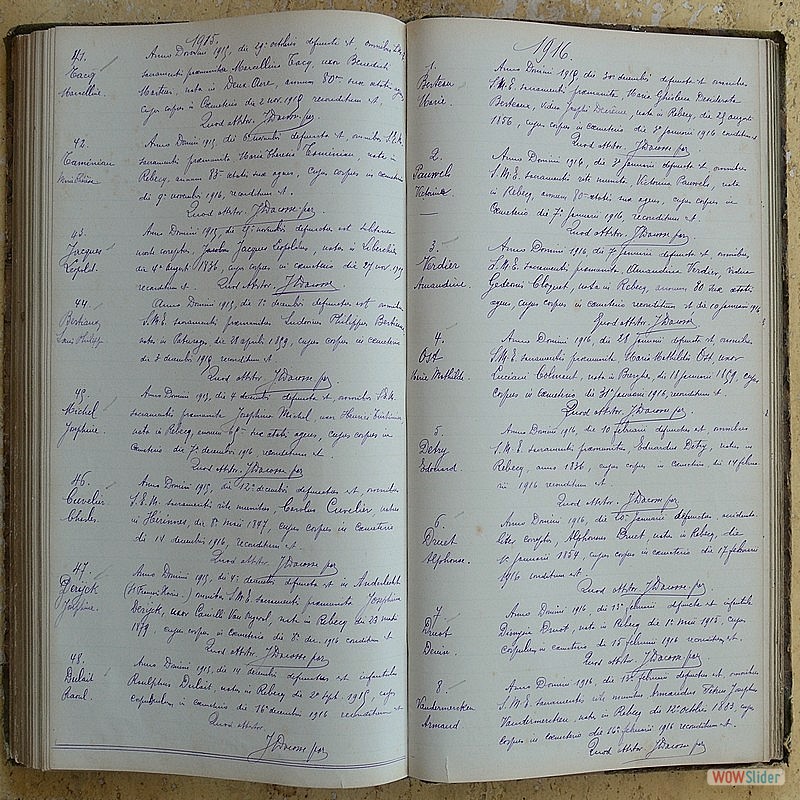 1915.
41.
Anno Domini 1915, die 29a octobris defuncta est, omnibus S.M.E.
Tacq
Marcelline.
sacramentis praemunita Marcellina Tacq, uxor Benedicti
Martin, nata in Deux Acre, annum 80um suae aetatis agens,
cujus corpus in Coemeterio die 2 nov. 1915 reconditum est.
Quod attstor. J Dacosse par.
42.
Anno Domini 1915, die 6 novembris defuncta est, omnibus S.M.E.
Marie Thérèse
sacramentis praemunita Maria Theresia, nata in
Rebecq, annum 83um aetatis suae agens, cujus corpus in coemeterio
die 9a novembris 1916, reconditum est.
Quod attstor. J Dacosse par.
43.
Anno Domini 1915, die novembris defunctus est subitanea
Jacques
Léopold.
morte correptus, Jacobus Jacques Leopoldus, natus in
die 4a augusti 1836, cujus corpus in coemeterio die 27 nov. 1915
reconditum est. Quod attstor. J Dacosse
44.
Anno Domini 1915, die 1a decembris defunctus est omnibus
Bertiaux
Louis Philippe
S.M.E. sacramentis praemunitus Ludovicus Philippus Bertiaux
natus in die 28 aprilis 1859, cujus corpus in coemeterio
die 3 decembris 1915 reconditum est.
Quod attstor. J Dacosse par.
45.
Anno Domini 1915, die 4 decembris defuncta est, omnibus S.M.E.
Michel
Joséphine.
sacramentis praemunita Josephina Michel, uxor Henrici
nata in Rebecq, annum suae aetatis agens, cujus corpus in
Coemeterio die 7a decembris 1916, reconditum est.
Quod attstor. J Dacosse par
46.
Anno Domini 1915, die 12a decembris defunctus est, omnibus
Cuvelier
Charles.
S.E.M. sacramentis rite munitus, Carolus Cuvelier, natus
in Hérinnes, die 8a maii 1847, cujus corpus in coemeterio
die 14 decembris 1916, reconditum est.
Quod attstor. J Dacosse par
47.
Anno Domini 1915, die 4a decembris defuncta est in Anderlecht
Deryck
Joséphine.
omnibus S.M.E. sacramentis praemunita Josephina
Deryck, uxor Camilli Van, nata in Rebecq die 23 maii
1879, cujus corpus in coemeterio die 8a dec. 1915 conditum est
Quod attstor. J Dacosse par
48.
Anno Domini 1915, die 14 decembris defunctus est infantulus
Dulait
Raoul.
Raulphus Dulait, natus in Rebecq die 2a sept. 1915, cujus
corpusculum in coemeterio die 16a decembris 1916 reconditum est
Quod attstor.
J Dacosse par
1916.
1.
Anno Domini 1915, die 30a decembris defuncta est omnibus
Berteau
Marie.
S.M.E. sacramentis praemunita, Maria Ghislena Desiderata
Berteaux, vidua Josephi, nata in Rebecq, die 29 augusti
1856, cujus corpus in coemeterio die 3a januarii 1916 conditum est
Quod attstor. J Dacosse par
2.
Anno Domini 1916, die 3a januarii defuncta est, omnibus
Pauwels
Victorine
S.M.E. sacramentis rite munita, Victorina Pauwels, nata
in Rebecq, annum 80um aetatis suae agens, cujus corpus in
Coemeterio die 7a januarii 1916, reconditum est.
Quod attstor. J Dacosse par.
3.
Anno Domini 1916, die 7 januarii defuncta est, omnibus
Verdier
Amandine.
S.M.E. sacramentis praemunita Amandina Verdier, vidua
Gedeoni Cloquet, nata in Rebecq, annum 80 suae aetatis
agens, cujus corpus in coemeterio reconditum est die 10 januarii 1916
Quod attstor. J Dacosse
4.
Anno Domini 1916, die 28 januarii defuncta est omnibus
Ost
Marie Mathilde.
S.M.E. sacramentis praemunita Maria Mathildis Ost, uxor
Luciani Colmant, nata in Berghe, die 18 januarii 1859, cujus
corpus in coemeterio die 31a januarii 1916, reconditum est.
Quod attstor. J Dacosse par.
5.
Anno Domini 1916, die 10 februarii defunctus est, omnibus
Detry
Edouard
S.M.E. sacramentis praemunitus Eduardus Detry, natus in
Rebecq, anno 1836, cujus corpus in coemeterio, die 14 februa
rii 1916 reconditum est.
Quod attstor. J Dacosse par
6.
Anno Domini 1916, die januarii defunctus, accidenta
Druet
Alphonse.
liter correptus, Alphonsus Druet, natus in Rebecq, die
1a januarii 1854, cujus corpus in coemeterio die 17 februarii
1916 conditum est.
Quod attstor. J Dacosse par
7.
Anno Domini 1916, die 13a februarii defuncta est infantula
Druet
Denise.
Dionysia Druet, nata in Rebecq die 1a maii 1915, cujus
corpusculum in coemeterio die 15 februarii 1916 reconditum est.
Quod attstor. J Dacosse par
8.
Anno Domini 1916, die 13a februarii defunctus est, omnibus
Vandermercken
Armand.
S.M.E. sacramentis rite munitus Amandus Josephus
Vandermercken, natus in Rebecq die 12a octobris 1863, cujus
corpus in coemeterio die 16a februarii 1916 reconditum est.
Quod attstor. J Dacosse par
WOWSlider